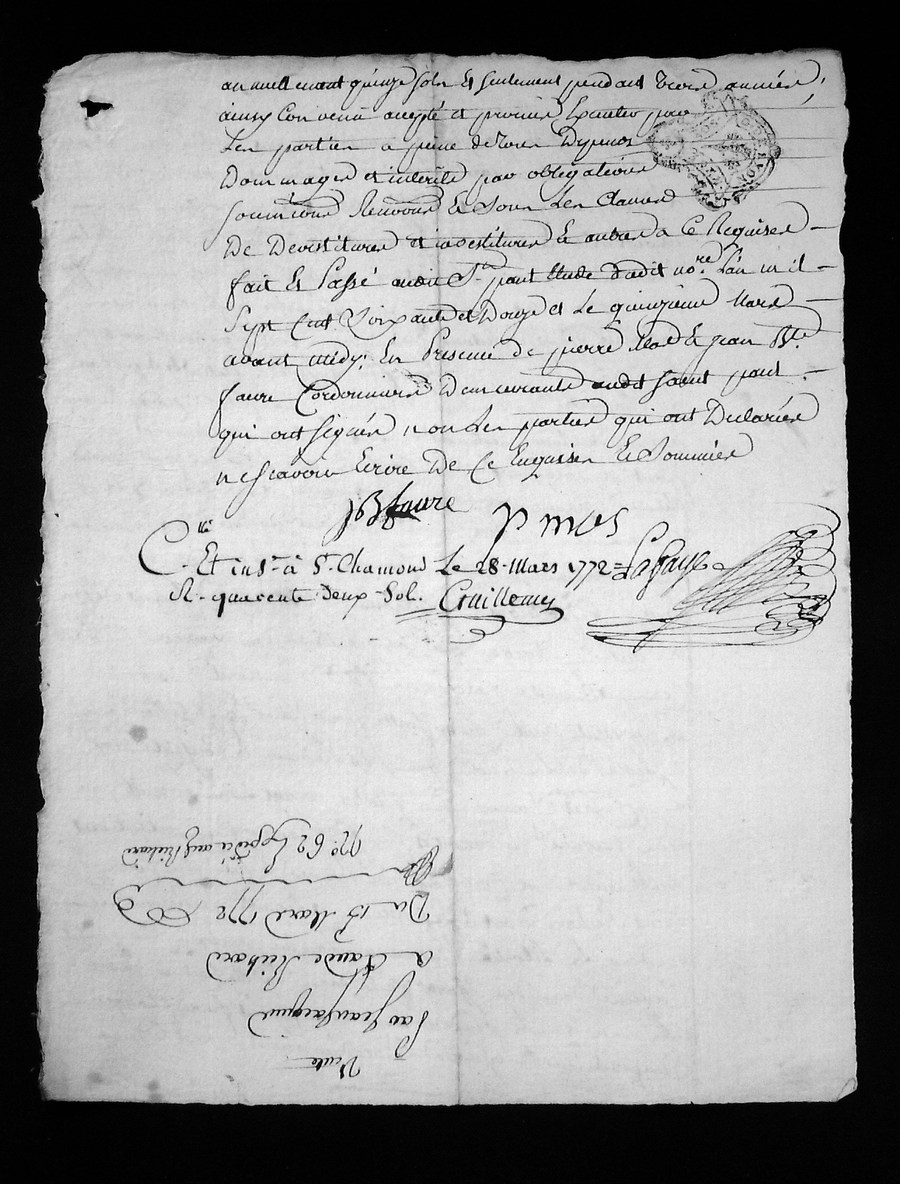 annuellement quinze sols Et seulement pendant trois années,
ainsy Convenu accepté et promis Executer par
Les parties a peine de tous Depens
Dommages et interests par obligations
soumissions Renonons & sous Les Clauses
De Devestitures et investitures & autres a Ce Requises
fait Et Passé audit St paul Etude dudit nore. L'an mil
Sept Cent Soixante et Douze et Le quinzieme Mars
avant midy, En Presence de pierre Mas & jean Bte
faure Cordonniers Demeurants audit saint paul
qui ont signés, non Les parties qui ont Declarées
ne scavoir Ecrire De Ce Enquises & Sommées
JB faure
p mas
C.lle Et ins.é à St. Chamond Le 28. Mars 1772
R. quarente deux Sol.
Vente
Par Jean
a Claude Richard
Du 15 Mars 1772
N.° 62 Expedié